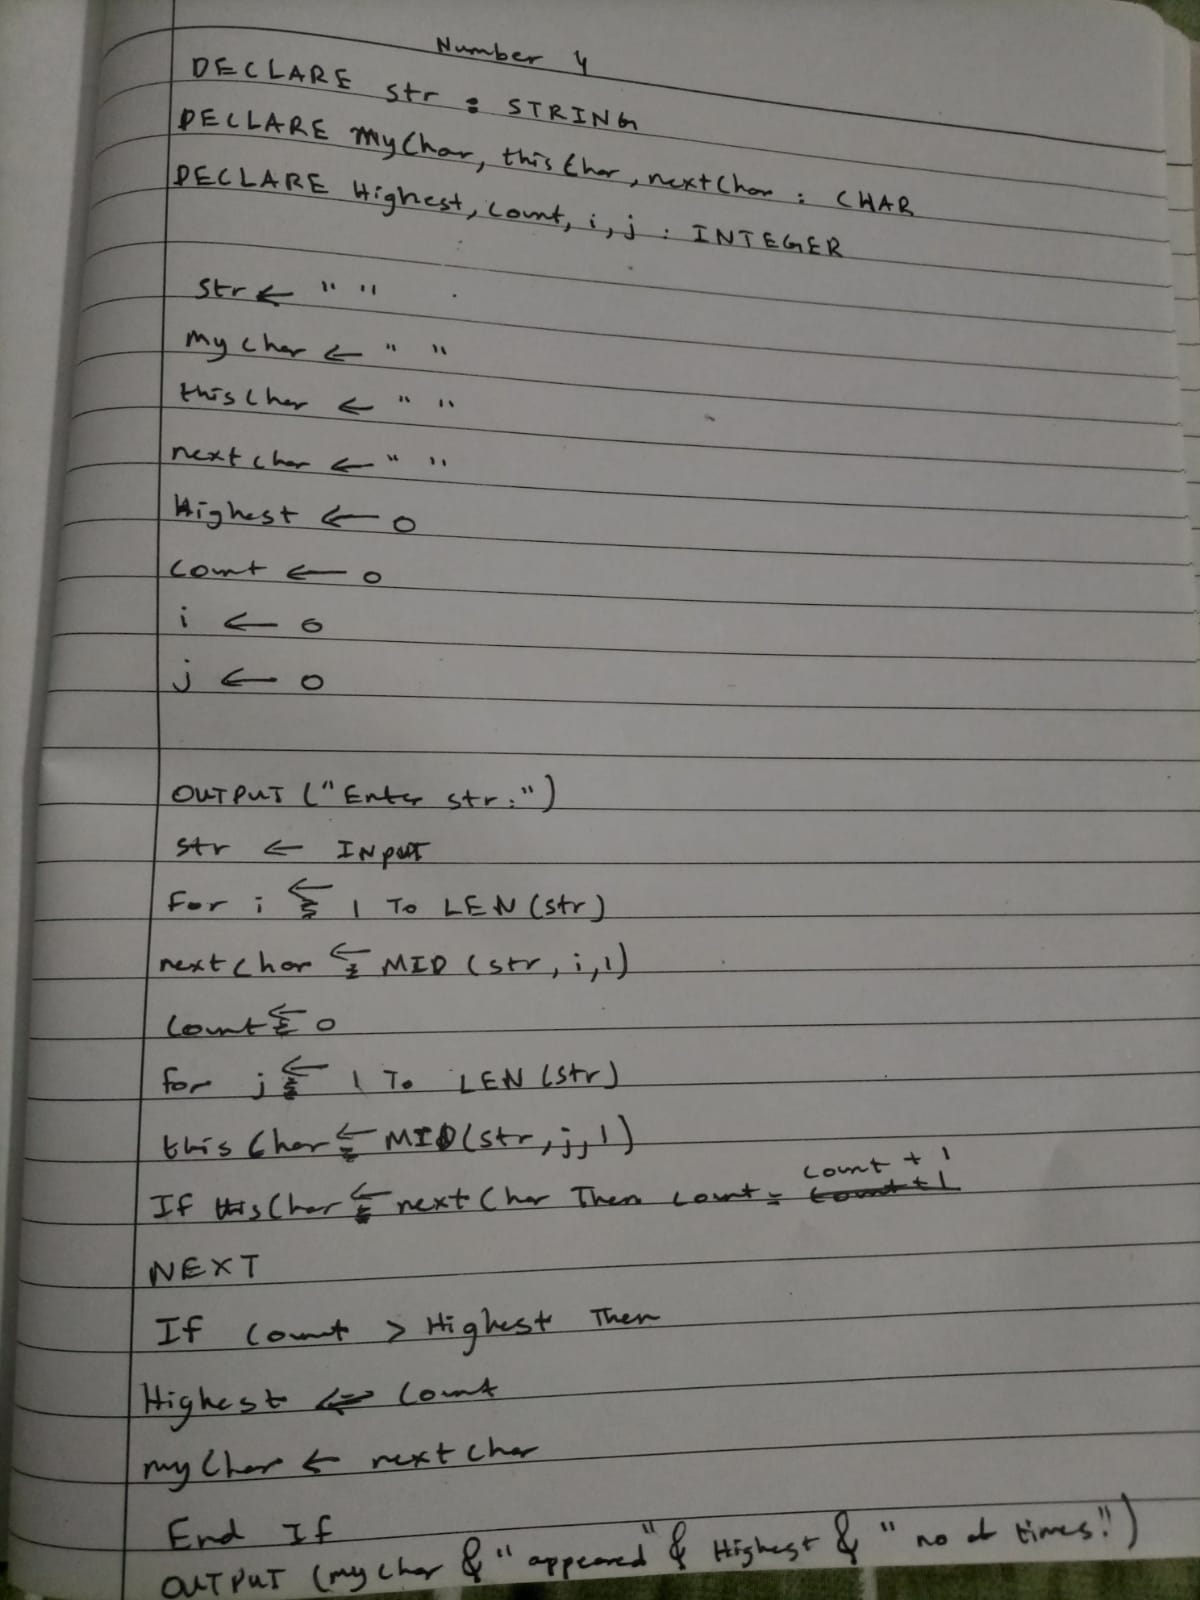 Number 4
DECLARE str : STRING
DECLARE myChar, thisChar, nextChar : CHAR
DECLARE Highest, Count, i, j : INTEGER
str ← " "
mychar ← " "
thisChar ← " "
nextchar ← " "
Highest ← 0
Count ← 0
i ← 0
j ← 0
OUTPUT ("Enter str:")
str ← INPUT
For i ← 1 To LEN (str)
nextchar ← MID (str, i, 1)
Count ← 0
for j ← 1 To LEN (str)
thisChar ← MID (str, j, 1)
If thisChar ← nextChar Then count = count + 1
NEXT
If Count > Highest Then
Highest ← Count
myChar ← nextchar
End If
OUTPUT (mychar & " appeared " & Highest & " no of times!")